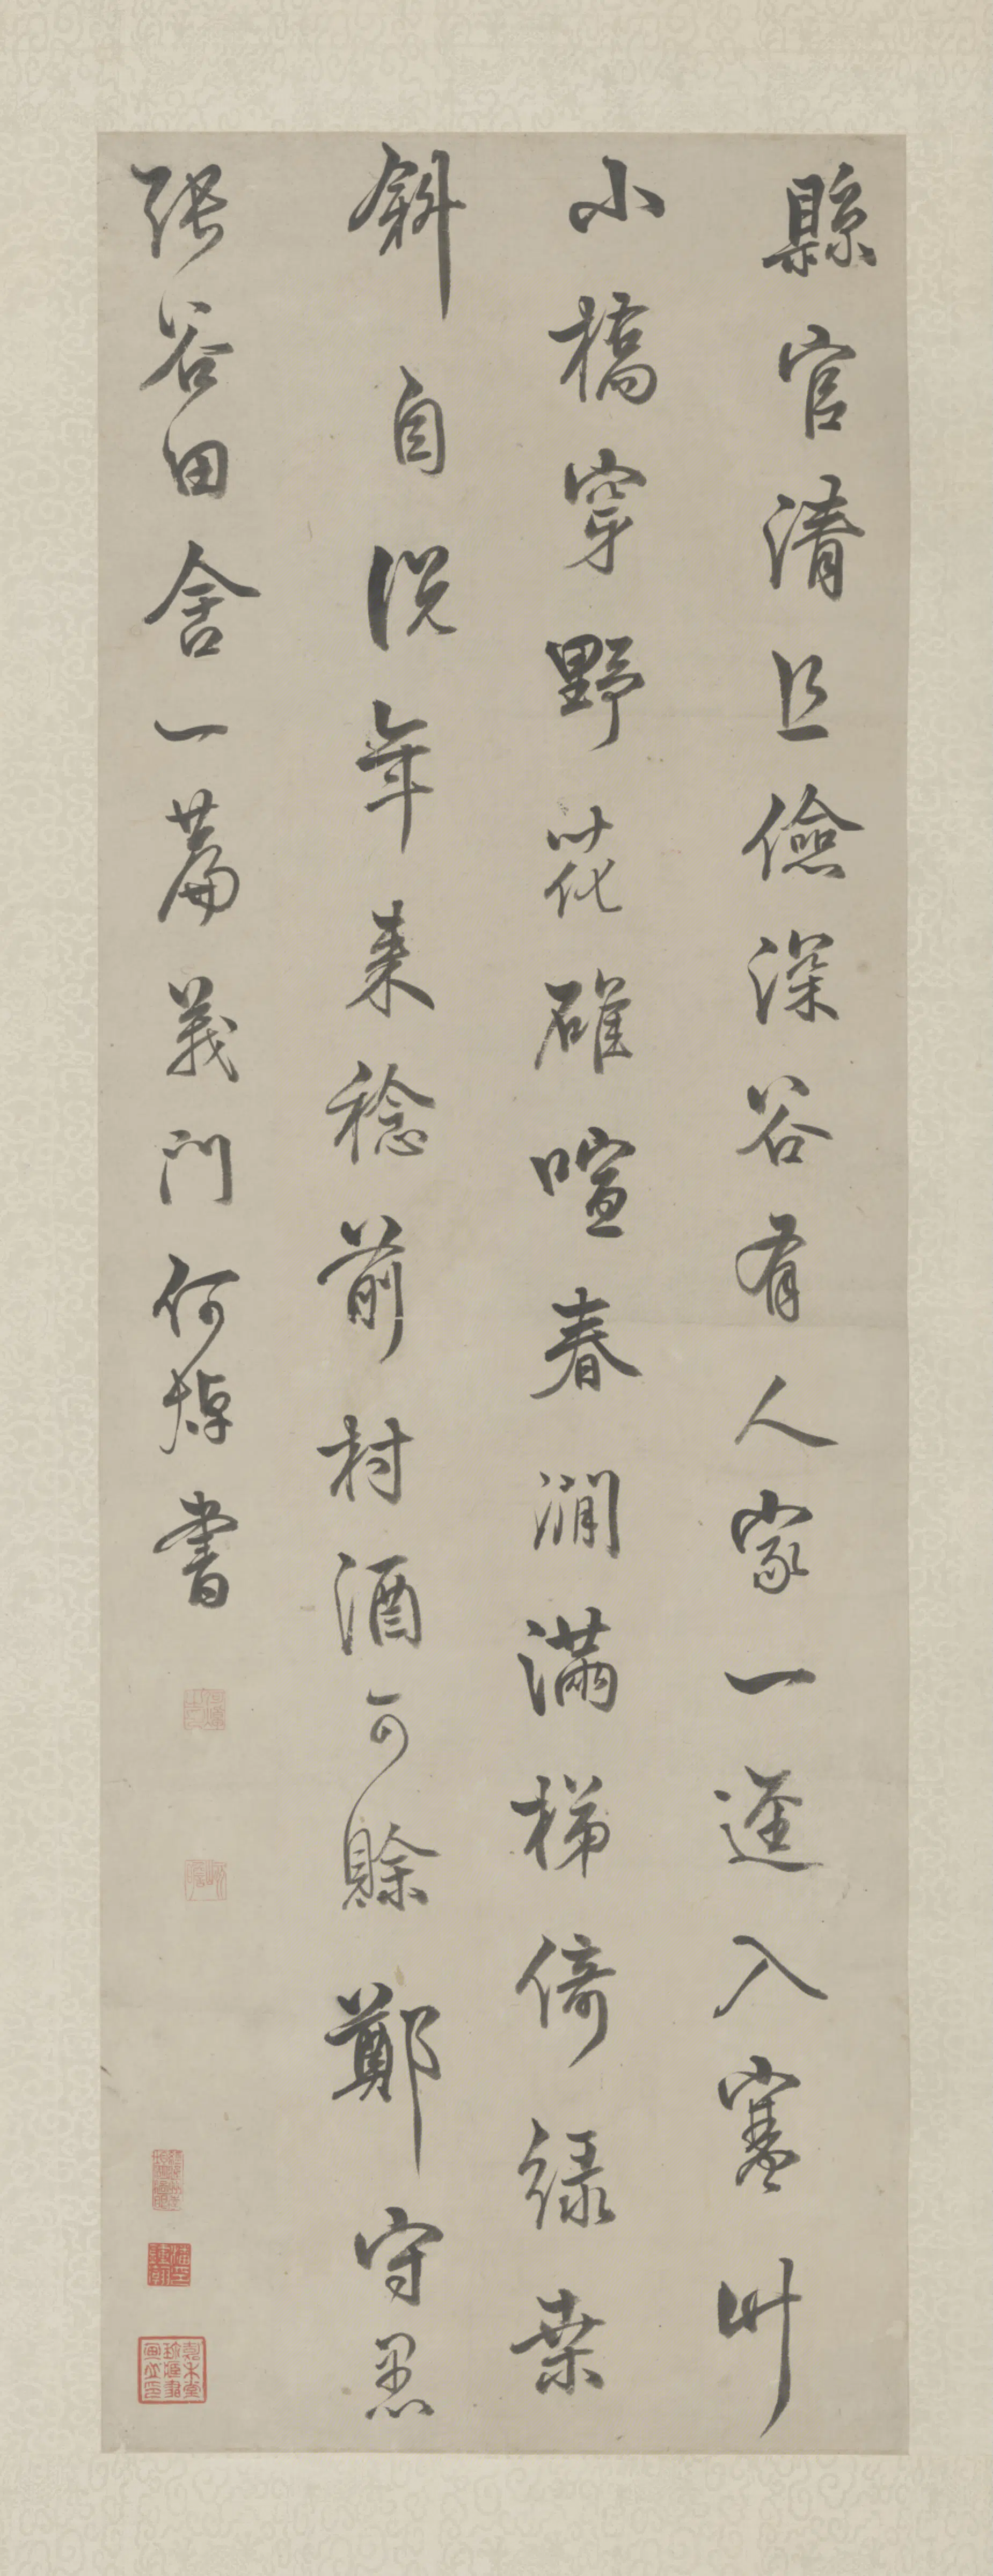 縣官清且儉深谷有人家一逕入寒竹
小橋穿野花碓喧春澗滿梯倚綠桑
斜自説年來稔前村酒可賒鄭守愚
張谷田舍一篇義門何焯書